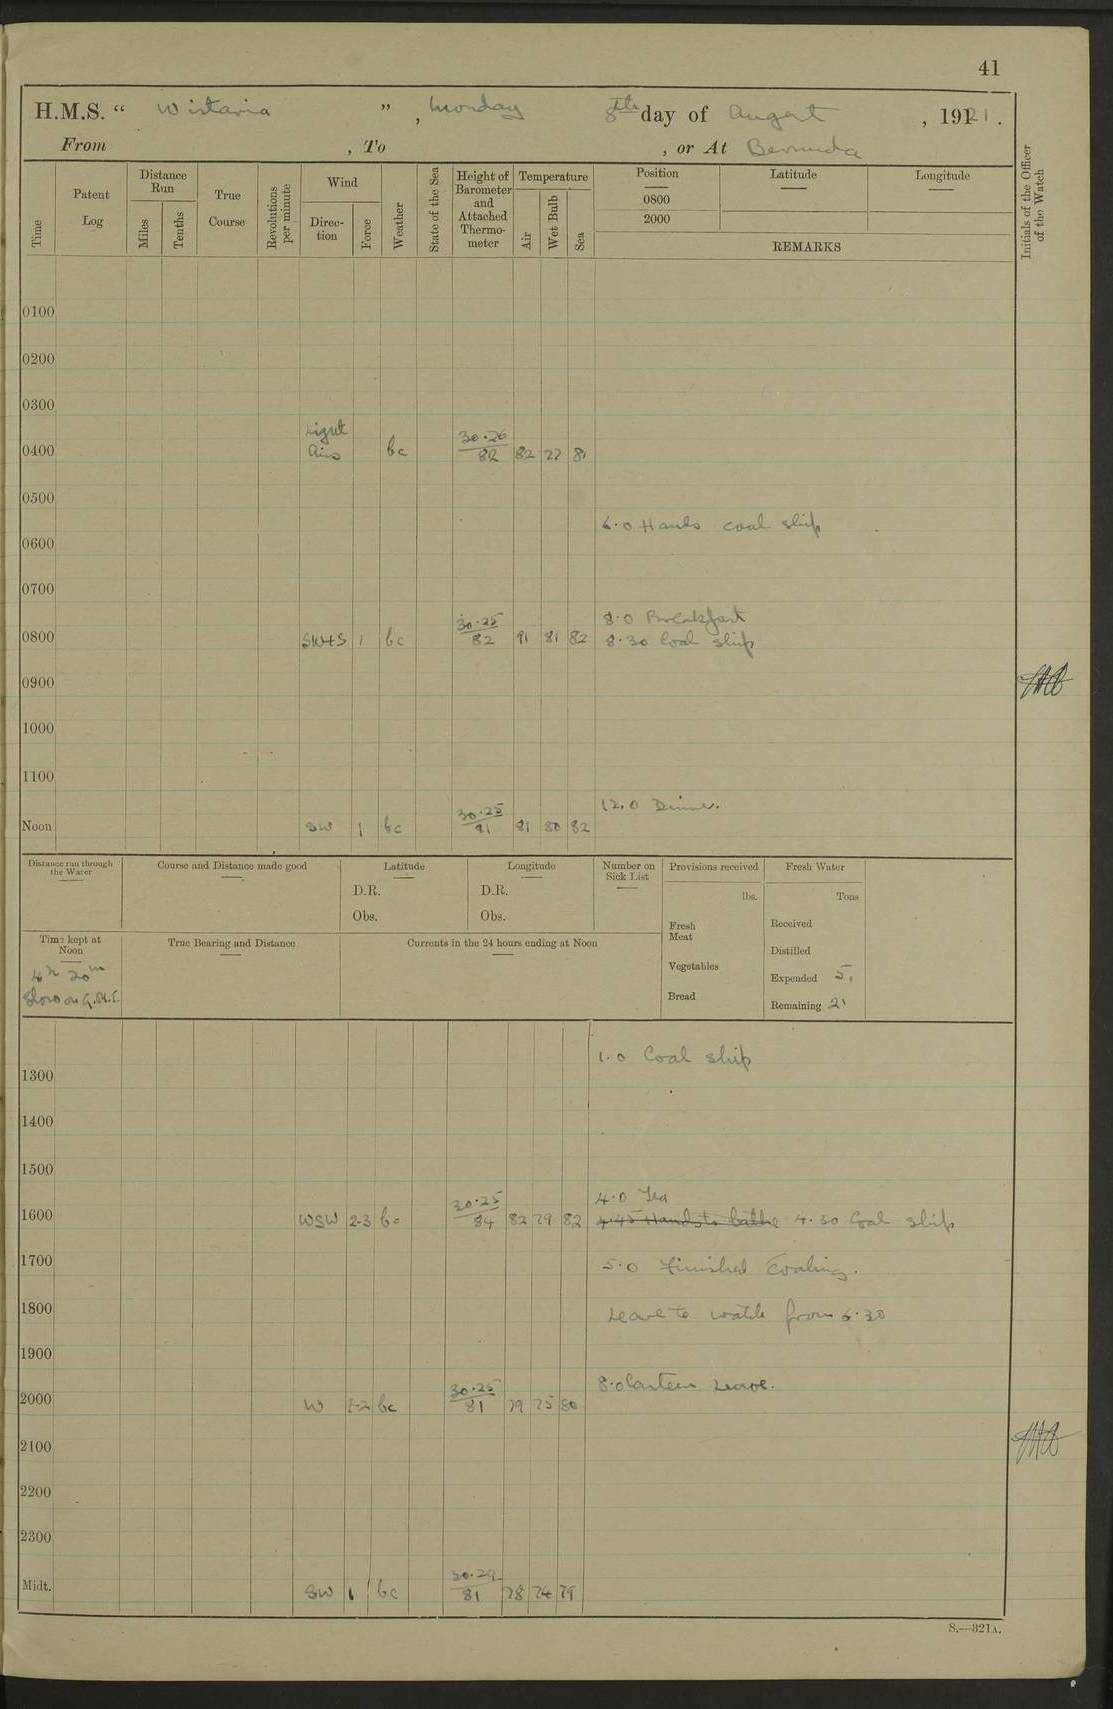 41
H.M.S. “ Wistaria ” , Monday 8th day of August , 1921 .
From , To , or At Bermuda
Time
Patent Log
Distance Run
Miles
Tenths
True Course
Revolutions per minute
Wind
Direc-tion
Force
Weather
State of the Sea
Height of Barometer and Attached Thermo-meter
Temperature
Air
Wet Bulb
Sea
Position
0800
2000
Latitude
Longitude
REMARKS
Initials of the Officer of the Watch
0100
0200
0300
Light
0400 Airs bc 30.26/82 82 77 81
0500
6.0 Hands coal ship
0600
0700
8.0 Breakfast
0800 SW+S 1 bc 30.25/82 81 82
8.30 Coal ship
0900
1000
1100
12.0 Dinner.
Noon SW 1 bc 30.25/81 81 80 82
Distance run through the Water
Course and Distance made good
Latitude
D.R.
Obs.
Longitude
D.R.
Obs.
Number on Sick List
Provisions received
lbs.
Fresh Meat
Vegetables
Bread
Fresh Water
Tons
Received
Distilled
Expended 5.
Remaining 21
Time kept at Noon
4h 20m
Slow on G.M.T.
True Bearing and Distance
Currents in the 24 hours ending at Noon
1.0 Coal ship
1300
1400
1500
4.0 Tea
1600 WSW 2-3 bc 30.25/84 82 79 82 4.45 Hands to bathe 4.30 Coal ship
1700 5.0 Finished Coaling.
1800 Leave to watch from 6.30
1900
8.0 Canteen Leave.
2000 W 1-2 bc 30.25/81 79 75 80
2100
2200
2300
Midt. SW 1 bc 30.29/81 78 74 79
S.—321A.